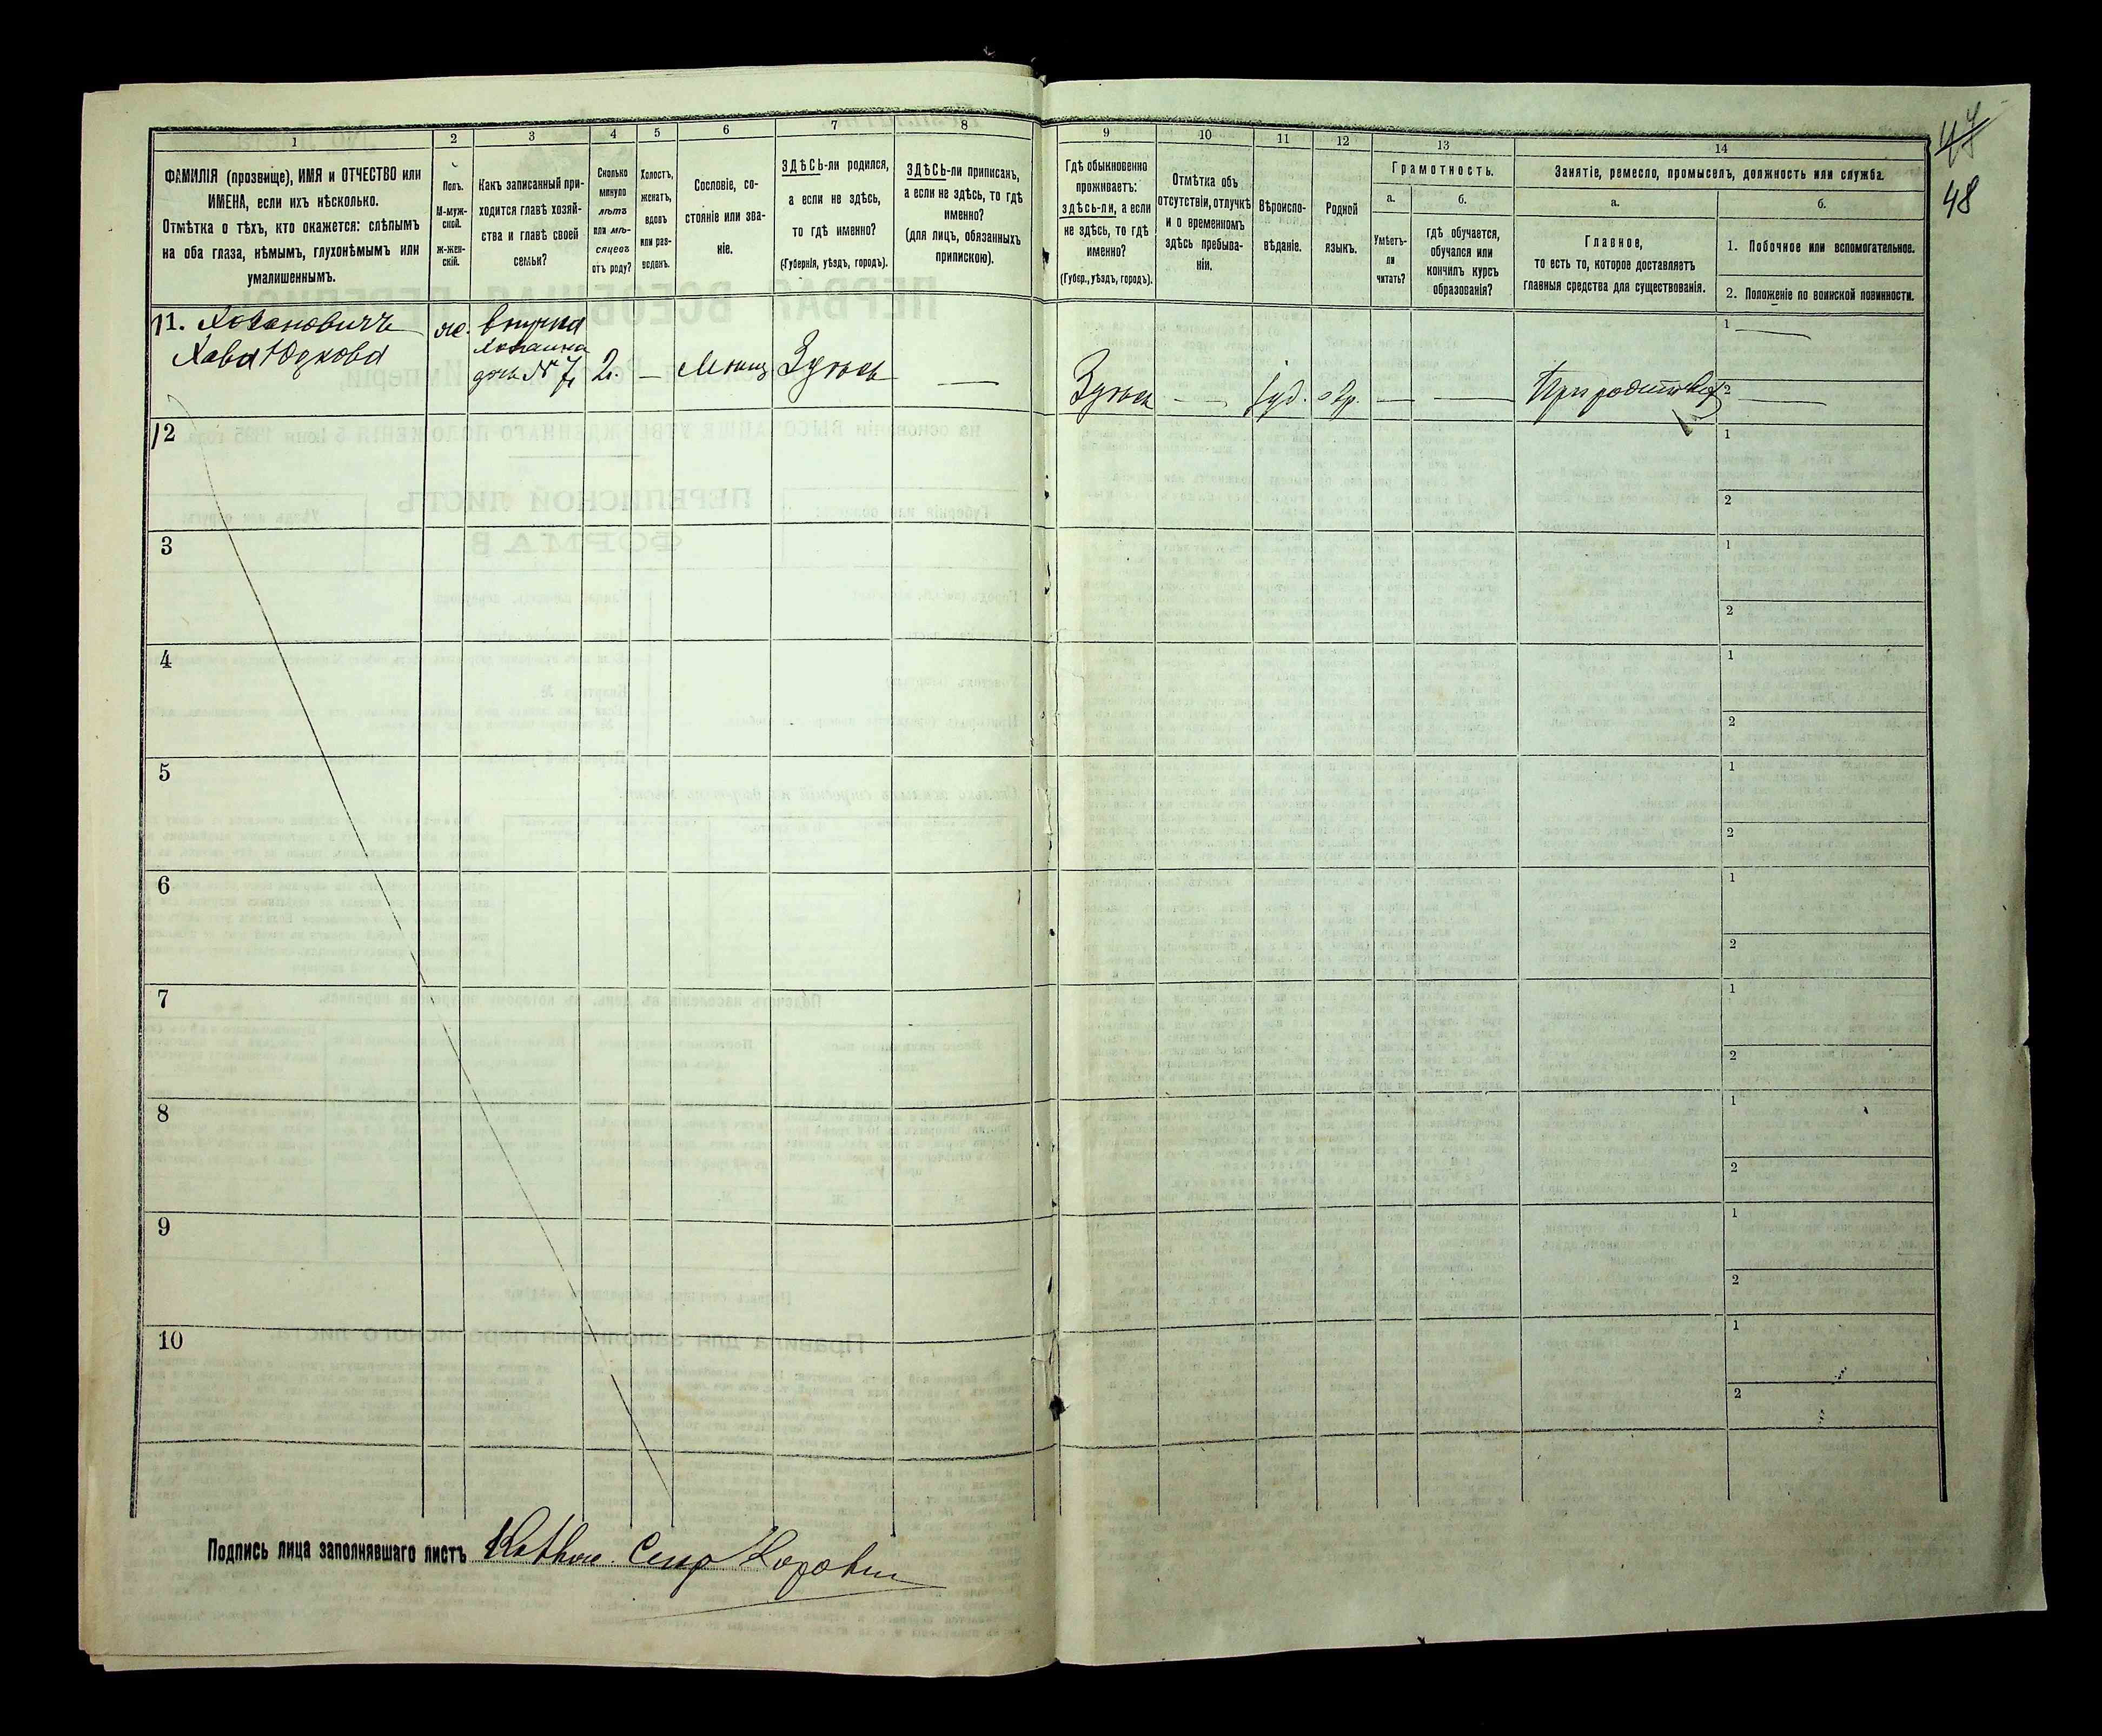 47
48
1
2
3
4
5
6
7
8
9
10
11
12
13
14
ФАМИЛІЯ (прозвище), ИМЯ и ОТЧЕСТВО или
ИМЕНА, если ихъ нѣсколько.
Отмѣтка о тѣхъ, кто окажется: слѣпымъ
на оба глаза, нѣмымъ, глухонѣмымъ или
умалишеннымъ.
Полъ.
М-муж-
ской.
ж-жен-
скій.
Какъ записанный при-
ходится главѣ хозяй-
ства и главѣ своей
семьи?
Сколько
минуло
лѣтъ
или мѣ-
сяцевъ
отъ роду?
Холостъ,
женатъ,
вдовъ
или раз-
веденъ.
Сословіе, со-
стояніе или зва-
ніе.
ЗДѢСЬ-ли родился,
а если не здѣсь,
то гдѣ именно?
(Губернія, уѣздъ, городъ).
ЗДѢСЬ-ли приписанъ,
а если не здѣсь, то гдѣ
именно?
(для лицъ, обязанныхъ
припискою).
Гдѣ обыкновенно
проживаетъ:
здѣсь-ли, а если
не здѣсь, то гдѣ
именно?
(Губер., уѣздъ, городъ).
Отмѣтка объ
отсутствіи, отлучкѣ
и о временномъ
здѣсь пребыва-
ніи.
Вѣроиспо-
вѣданіе.
Родной
языкъ.
Грамотность.
а.
Умѣетъ-
ли
читать?
б.
гдѣ обучается,
обучался или
кончилъ курсъ
образованія?
Занятіе, ремесло, промыселъ, должность или служба.
а.
Главное,
то есть то, которое доставляетъ
главныя средства для существованія.
б.
1. Побочное или вспомогательное.
2. Положеніе по воинской повинности.
11. Хава Юдкова
ж.
внучка
дочь № 7
2.
—
Мѣщ
Здѣсь
—
Здѣсь
—
Іуд.
евр.
—
—
При родителяхъ
1 —
2 —
12
1
2
3
1
2
4
1
2
5
1
2
6
1
2
7
1
2
8
1
2
9
1
2
10
1
2
Подпись лица заполнявшаго листъ